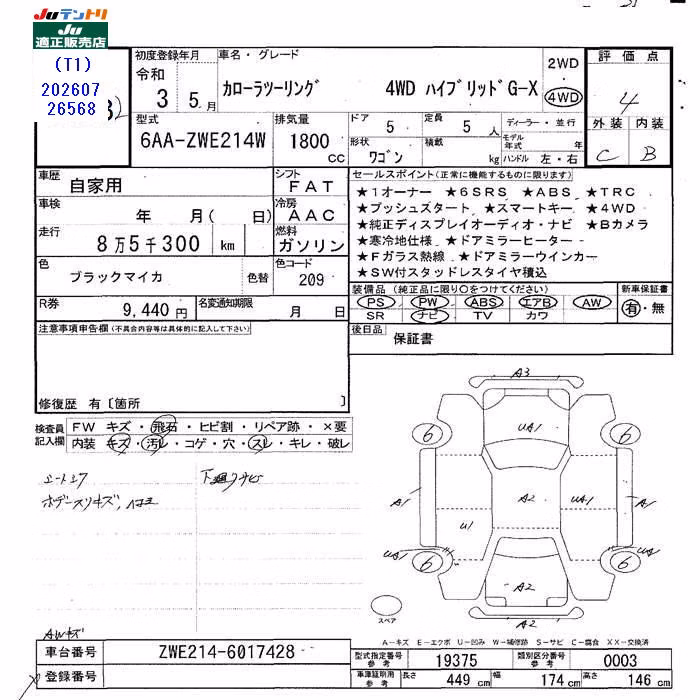 Juテントリ
Ju
適正販売店
(T1)
202607
26568
初度登録年月
令和
3 5月
車名・グレード
カローラツーリング 4WD ハイブリッドG-X
2WD
4WD
評価点
4
外装 内装
C B
型式
6AA-ZWE214W
排気量
1800
cc
ドア
5
定員
5 人
ディーラー・並行
形状
ワゴン
積載
kg
モデル年式 年
ハンドル 左・右
車歴
自家用
シフト
FAT
車検
年 月( 日)
冷房
AAC
走行
8万5千300 km
燃料
ガソリン
色
ブラックマイカ
色替
色コード
209
R券
9,440円
名変通知期限
月 日
セールスポイント(正常に機能するものに限ります)
★1オーナー ★6SRS ★ABS ★TRC
★プッシュスタート ★スマートキー ★4WD
★純正ディスプレイオーディオ・ナビ ★Bカメラ
★寒冷地仕様 ★ドアミラーヒーター
★Fガラス熱線 ★ドアミラーウインカー
★SW付スタッドレスタイヤ積込
装備品(純正品に限り○をつけてください)
PS PW ABS エアB AW
SR ナビ TV カワ
新車保証書
有・無
後日品
保証書
注意事項申告欄(不具合内容等は具体的に記入して下さい)
修復歴 有〔箇所 〕
検査員
記入欄
FW キズ・飛石・ヒビ割・リペア跡・×要
内装 キズ・汚レ・コゲ・穴・スレ・キレ・破レ
下廻りサビ
AWキズ
A3
UA1
6
6
A1
A2
UA1
A1
U1
UA1
UA1
6
6
A2
A2
スペア
A-キズ E-エクボ U-凹み W-補修跡 S-サビ C-腐食 XX-交換済
車台番号
ZWE214-6017428
登録番号
型式指定番号
参考
19375
類別区分番号
参考
0003
車庫証明用
参考
長さ
449 cm
幅
174 cm
高さ
146 cm